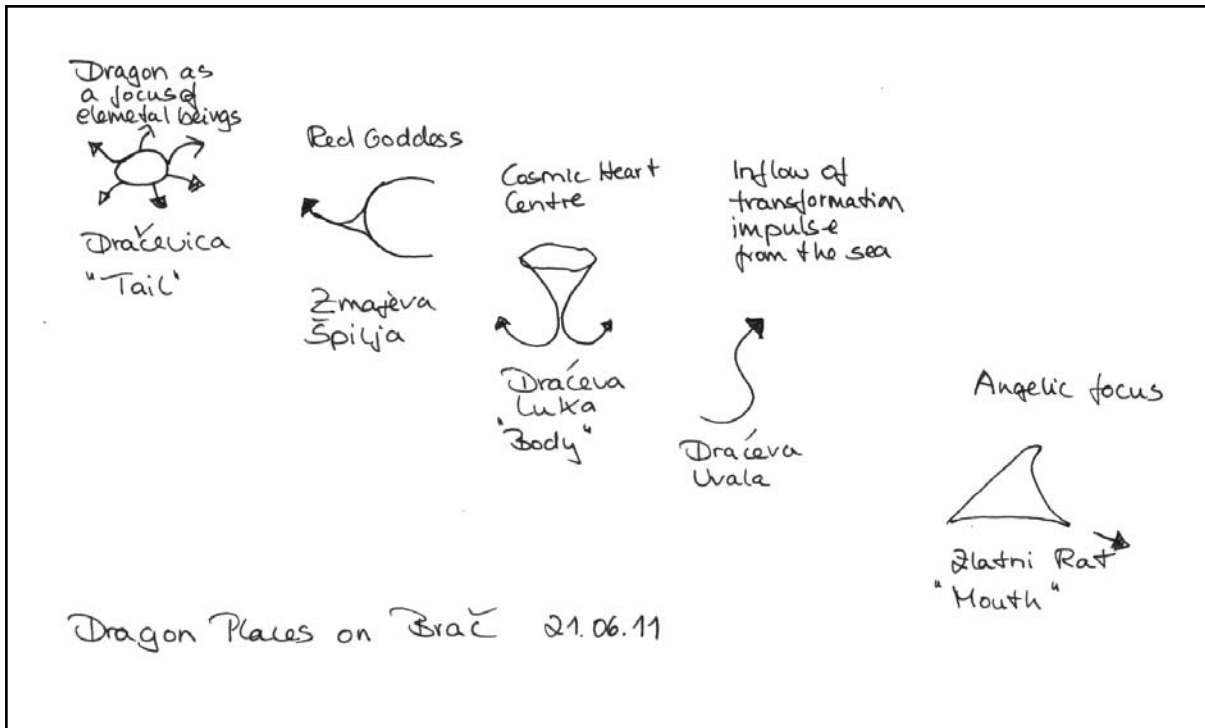 Dragon as
a focus of
elemetal beings
Dračevica
"Tail"
Red Goddess
Zmajeva
Špilja
Cosmic Heart
Centre
Draćeva
Luka
"Body"
Inflow of
transformation
impulse
from the sea
Draćeva
Uvala
Angelic focus
Zlatni Rat
"Mouth"
Dragon Places on Brač 21.06.11